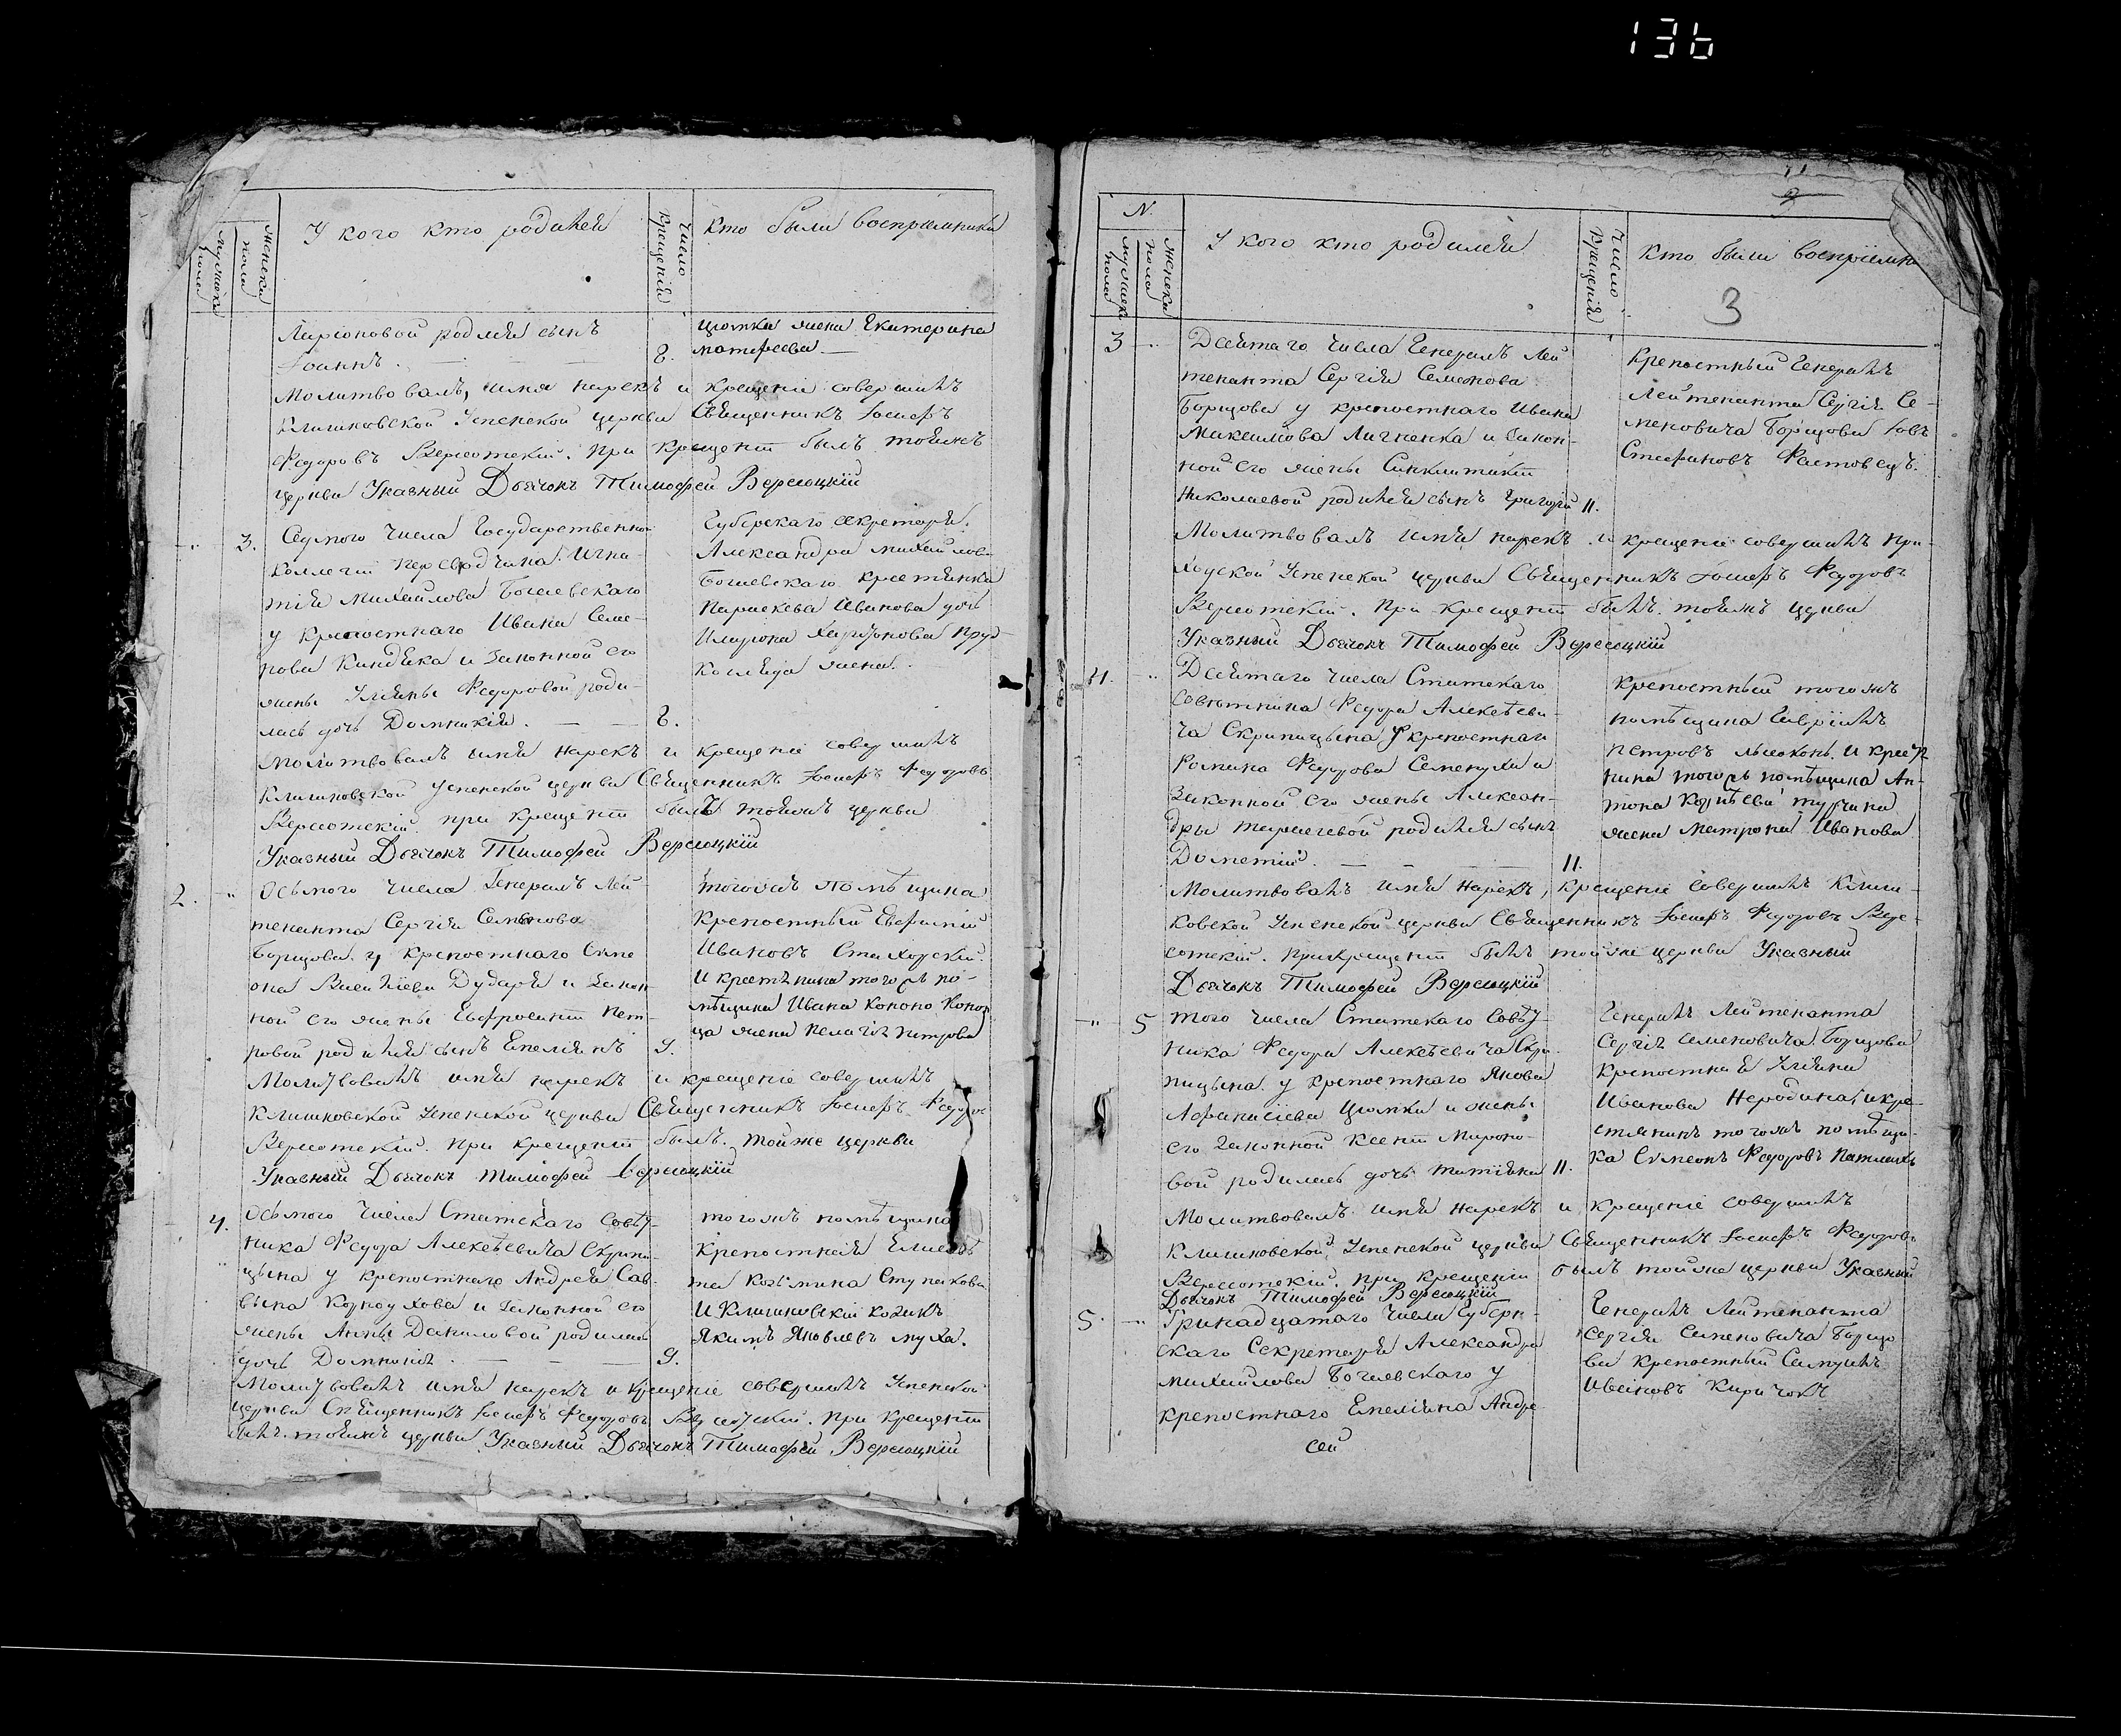 136
Женска пола
мужеска пола
У кого кто родился
Число крещенія
кто были восприемники
Ларионовой родился сынъ
Іоаннъ. — — 8.
цюмка жена Екатерина
матфеева —
Молитвовалъ, имя нарекъ и крещеніе совершилъ
Клишковской Успенской церкви Священникъ Іосифъ
Федоровъ Вересотскій. При крещеніи былъ тояжъ
церкви Указный Дьячокъ Тимофей Вересоцкій
3. Седмого числа Государственной
коллегіи переводчика Игна-
тія Михайлова Богаевскаго
у крепостнаго Ивана Семе-
нова Киндика и законной его
жены Ульяны Федоровой роди-
лась дочь Домникія. — — 8.
Губерскаго секретаря
Александра михайлова
Богаевскаго крестянка
Параскева Иванова дочь
Илариона Харитонова
жена.
молитвовалъ имя нарекъ и крещеніе совершилъ
Клишковской Успенской церкви Священникъ Іосифъ Федоровъ
Вересотскій при крещеніи былъ тояжъ церкви
Указный Дьячокъ Тимофей Вересоцкій
2. Осьмого числа Генералъ Лей-
тенанта Сергія Семенова
Борщова у крепостнаго Симе
она Василіева Дударя и закон
ной его жены Евфросиніи Пет-
ровой родился сынъ Емеліянъ 9.
тогожъ помѣщика
Крепостный Евфимій
Ивановъ Стахорскій.
И крестянина тогожъ по-
мѣщика Ивана
жена Пелагія Петрова
Молитвовалъ имя нарекъ и крещеніе совершилъ
Клишковской Успенской церкви Священникъ Іосифъ Федоров
Вересотскій. при крещеніи былъ. тойже церкви
Указный Дьячокъ Тимофей Вересоцкій
4. Осьмого числа Статскаго Совѣт-
ника Федора Алексѣевича Скрипи-
цына у крепостнаго Андрея Сав-
вына Корноухова и законной его
жены Анны Даниловой родилась
дочь Домникія. — — 9.
тогожъ помѣщика
Крепостная Елисаве
та Козьмина Ступакова
И Клишковскій козакъ
Якимъ Яковлевъ муха.
Молитвовалъ имя нарекъ и крещеніе совершилъ Успенской
церкви Священникъ Іосифъ Федоровъ Вересотскій. при крещеніи
былъ. тояжъ церкви Указный Дьячокъ Тимофей Вересоцкій
3
N.
мужеска пола
Женска пола
У кого кто родился
Число крещенія
Кто были воспріемни
3
3 Десятаго числа Генералъ Лей
тенанта Сергія Семенова
Борщова у крепостнаго Ивана
Максимова Личненка и закон-
ной его жены Синклитикіи
Николаевой родился сынъ Григорій 11.
Крепостный Генералъ
Лейтенанта Сергія Се-
меновича Борщова Іовъ
Стефановъ Фастовецъ.
Молитвовалъ имя нарекъ и крещеніе совершилъ При-
ходской Успенской церкви Священникъ Іосифъ Федоровъ
Вересотскій. При крещеніи былъ. тояжъ церкви
Указный Дьячокъ Тимофей Вересоцкій
4. Десятаго числа Статскаго
Совѣтника Федора Алексѣеви-
ча Скрипицына У крепостнаго
Романа Федорова Семенухи и
Законной его жены Алексан-
дры родился сынъ
Дометій. — — 11.
крепостный тогожъ
помѣщика Гавріилъ
петровъ и крестя
нина тогожъ помѣщика Ан-
тона Корнѣева турчина
жена Матрона Иванова
Молитвовалъ имя нарекъ, крещеніе совершилъ Клиш-
ковской Успенской церкви Священникъ Іосифъ Федоровъ Вере-
сотскій. при крещеніи былъ той же церкви Указный
Дьячокъ Тимофей Вересоцкій
5 того числа Статскаго Совѣт-
ника Федора Алексѣевича Скри-
пицына у крепостнаго Якова
Афанасіева Цюмки и жены
его законной Ксеніи Мироно-
вой родилась дочь татіяна 11.
Генералъ Лейтенанта
Сергія Семеновича Борщова
крепостная Уліяна
Иванова Неродина, и кре-
стянинъ тогожъ помѣщи-
ка Симеонъ Федоровъ
Молитвовалъ имя нарекъ и крещеніе совершилъ
Клишковской Успенской церкви Священникъ Іосифъ Федоровъ
Вересотскій. при крещеніи былъ тойже церкви Указный
Дьячокъ Тимофей Вересоцкій
5. Тринадцатаго числа Губерн-
скаго Секретаря Александра
Михайлова Богаевскаго у
крепостнаго Емеліяна Андре
сей
Генералъ Лейтенанта
Сергія Семеновича Борщо
ва крепостный Самуилъ
Ивановъ Киричокъ